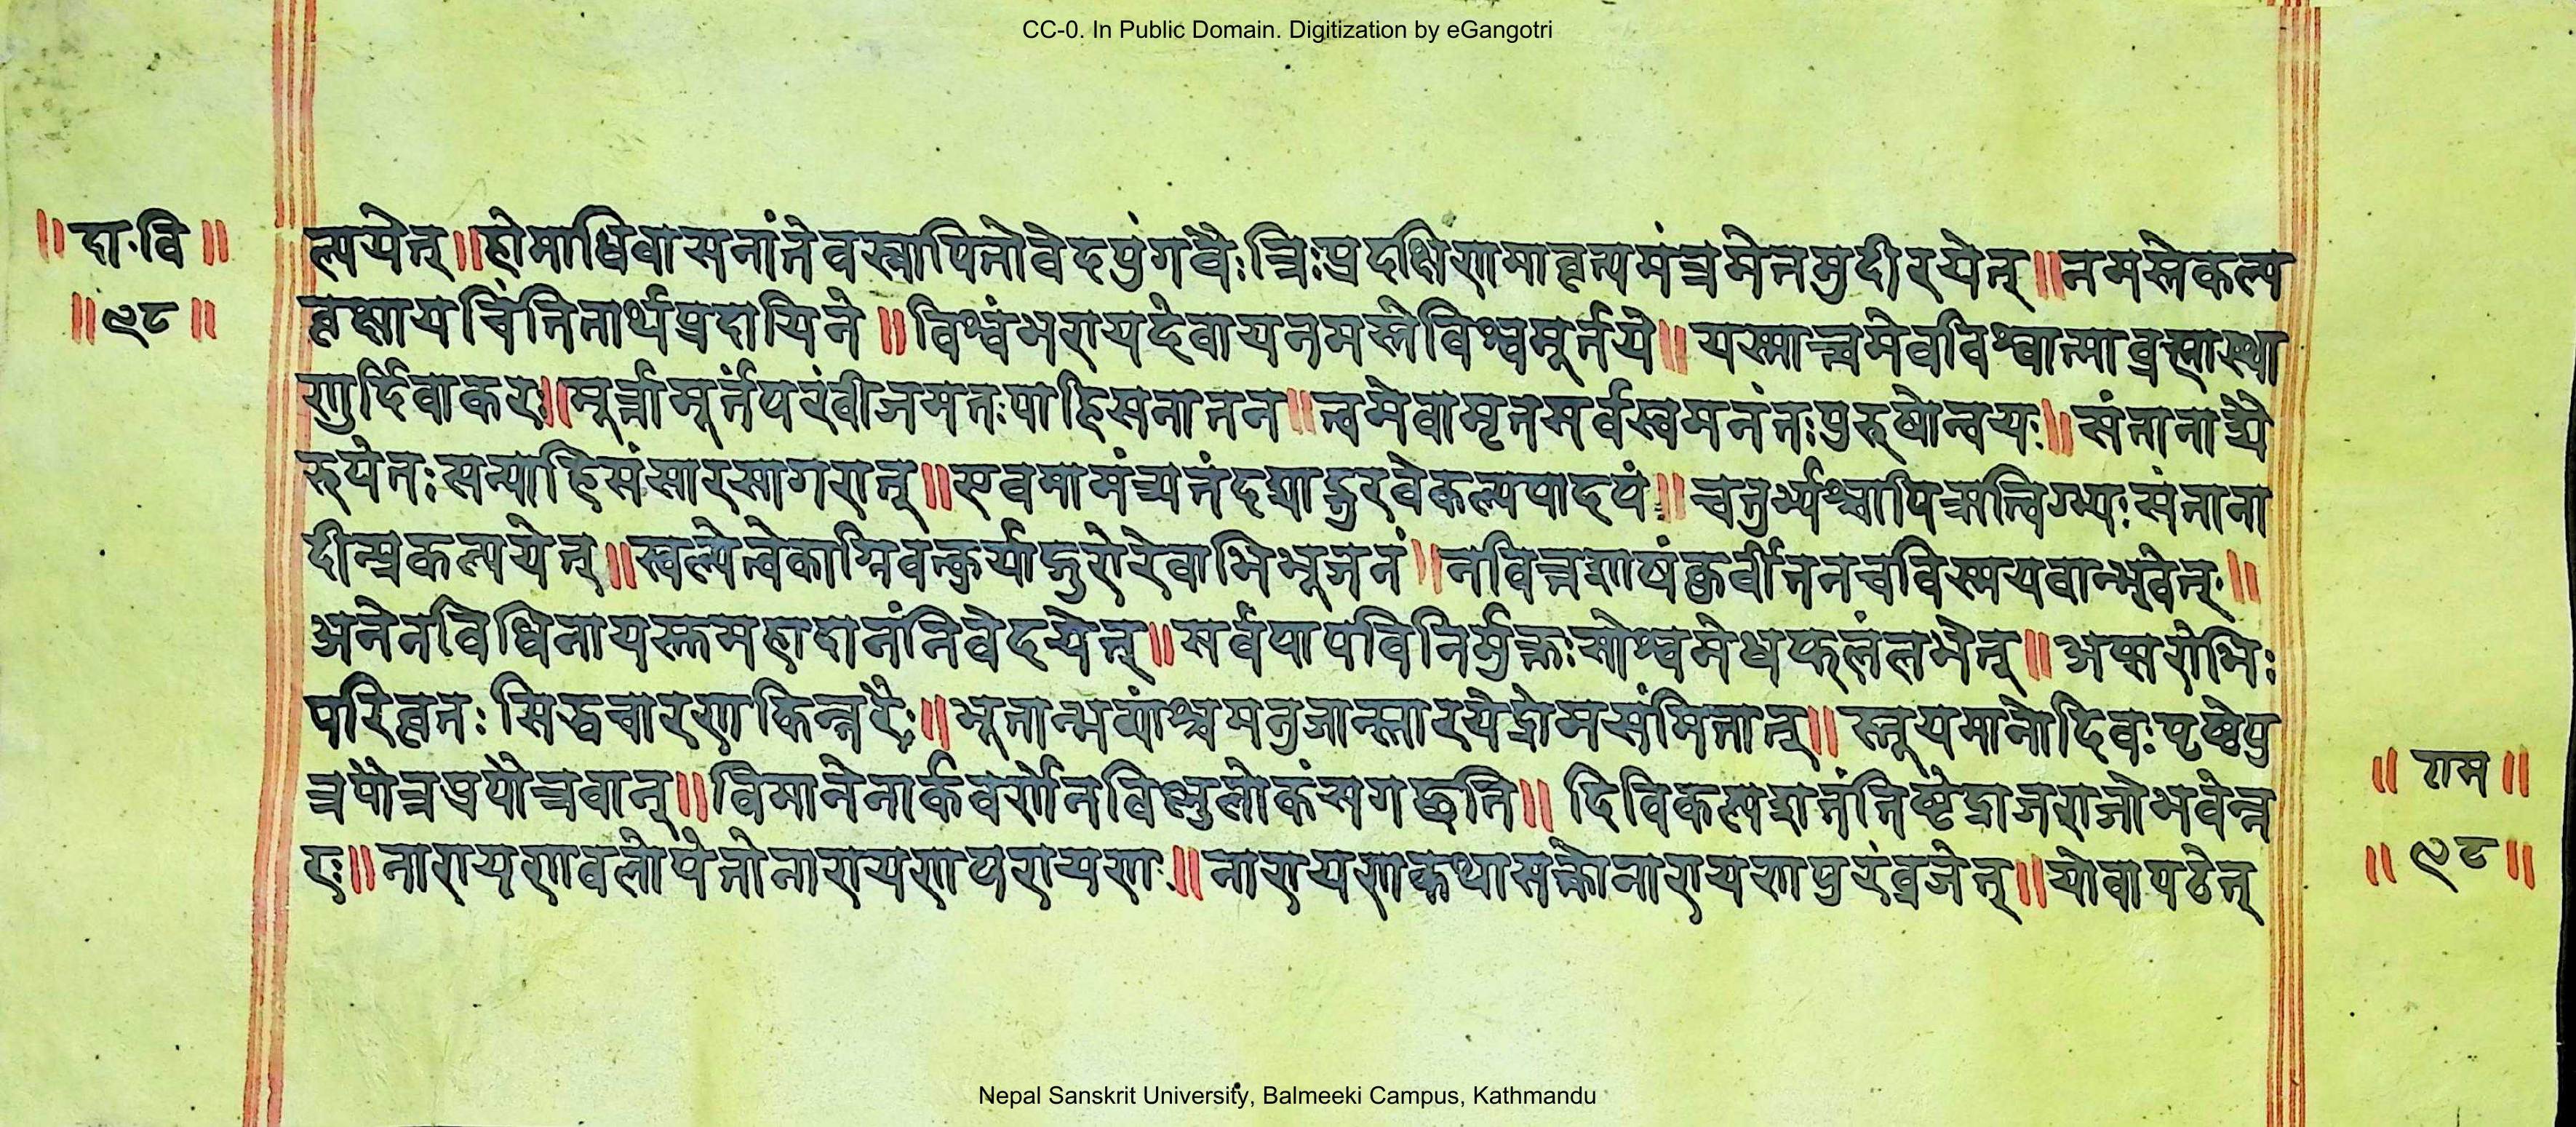 CC-0. In Public Domain. Digitization by eGangotri
॥ दा॰वि ॥
॥ १८ ॥
ल्पयेत् ॥ होमाधिवासनांतेवस्नापितोवेदपुंगवैः त्रिःप्रदक्षिणमावृत्यमंत्रमेतमुदीरयेत् ॥ नमस्तेकल्प
वृक्षायचिंतितार्थप्रदायिने ॥ विश्वंभरायदेवायनमस्तेविश्वमूर्तये ॥ यस्मात्त्वमेवविश्वात्माब्रह्मास्था
णुर्दिवाकरः ॥ मूर्त्तामूर्तपरंवीजमतःपाहिसनातन ॥ त्वमेवामृतसर्वस्वमनंतःपुरुषोव्ययः ॥ संतानाद्यै
रुपेतःसत्पाहिसंसारसागरात् ॥ एवमामंत्र्यतंदद्याद्गुरवेकल्पपादपं ॥ चतुर्भ्यश्चापिऋत्विग्भ्यःसंताना
दीन्प्रकल्पयेत् ॥ स्वल्पेत्वेकाग्निवत्कुर्याद्गुरोरेवाभिभूजनं ॥ नवित्तशाठ्यंकुर्वीतनचविस्मयवान्भवेत् ॥
अनेनविधिनायस्तमहादानंनिवेदयेत् ॥ सर्वपापविनिर्मुक्तःसोश्वमेधफलंलभेत् ॥ अप्सरोभिः
परिवृतः सिद्धचारणकिन्नरैः ॥ भूतान्भव्यांश्चमनुजान्स्तारयेद्रोमसंमितान् ॥ स्तूयमानोदिवःपृष्ठेपु
त्रपौत्रप्रपौत्रवान् ॥ विमानेनार्कवर्णेनविष्णुलोकंसगछति ॥ दिविकल्पशतंतिष्ठेद्राजराजोभवेत्त
तः ॥ नारायणवलोपेतोनारायणपरायणः ॥ नारायणकथासक्तोनारायणपुरंव्रजेत् ॥ योवापठेत्
॥ राम ॥
॥ १८ ॥
Nepal Sanskrit University, Balmeeki Campus, Kathmandu